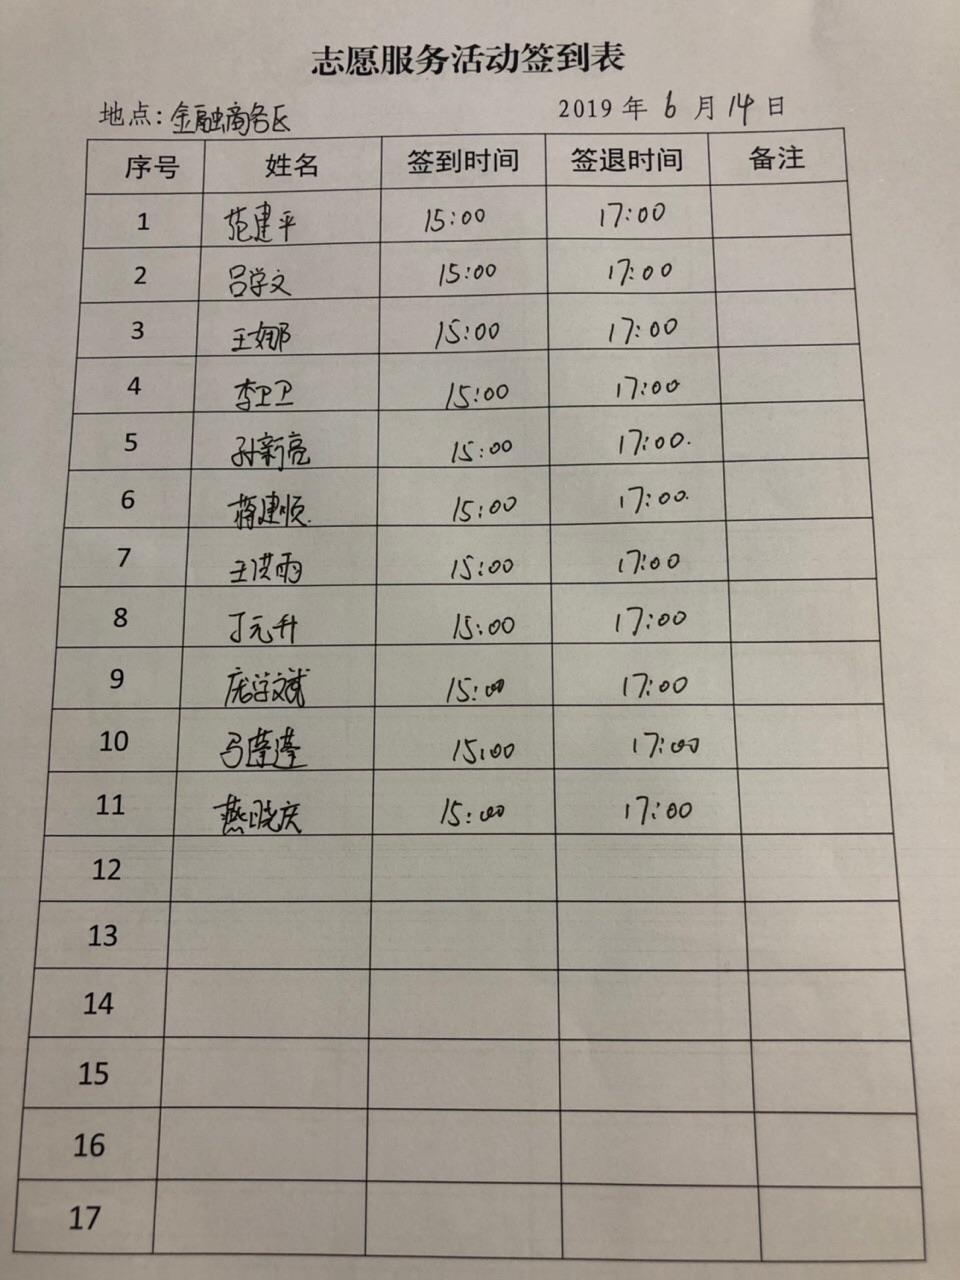 志愿服务活动签到表
地点：金融商务区 2019 年 6 月 14 日
序号 姓名 签到时间 签退时间 备注
1 范建平 15:00 17:00
2 吕学文 15:00 17:00
3 王娜 15:00 17:00
4 李卫卫 15:00 17:00
5 孙新亮 15:00 17:00.
6 蒋建顺. 15:00 17:00.
7 王洪雨 15:00 17:00
8 丁元升 15:00 17:00
9 庞学文斌 15:00 17:00
10 马蓬蓬 15:00 17:00
11 燕晓庆 15:00 17:00
12
13
14
15
16
17